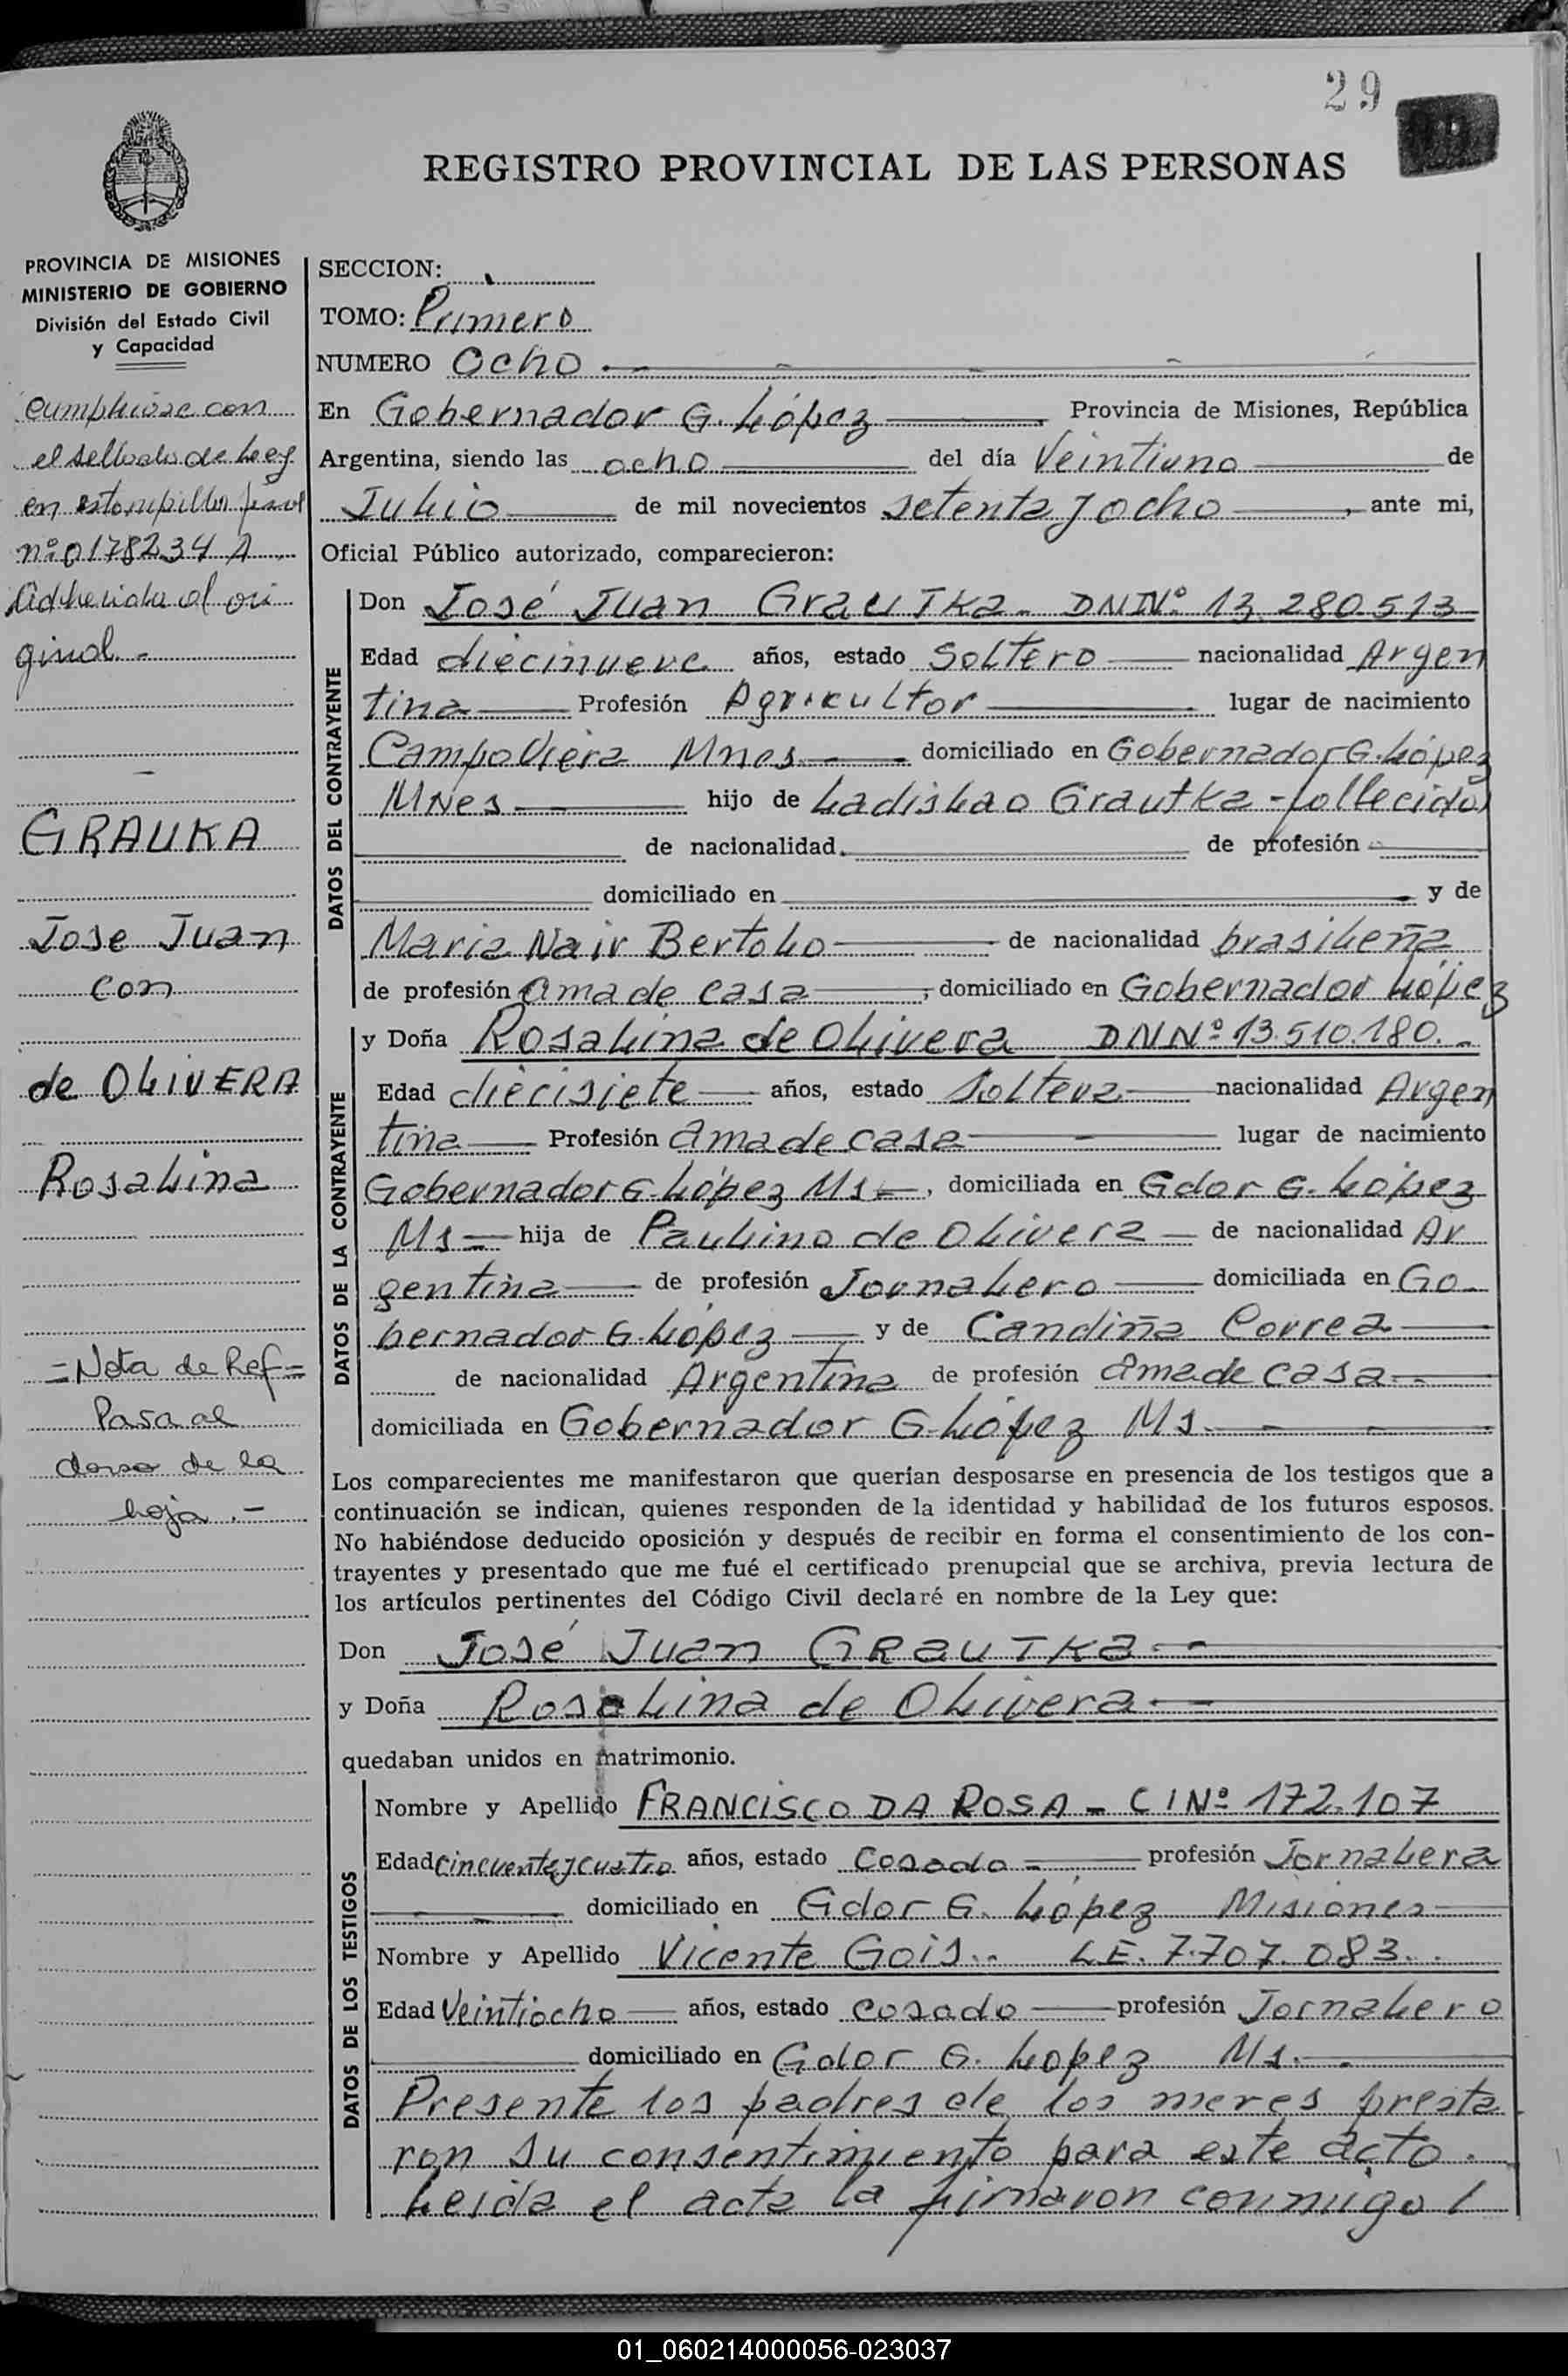 29
REGISTRO PROVINCIAL DE LAS PERSONAS
PROVINCIA DE MISIONES
MINISTERIO DE GOBIERNO
División del Estado Civil
y Capacidad
cumpliose con
el sellado de Ley
en estampilla fiscal
nº 0178234 A
adherida al ori
ginal -
GRAUKA
Jose Juan
con
de OLIVERA
Rosalina
= Nota de Ref =
Pasa al
dorso de la
hoja . -
SECCION:
TOMO: Primero
NUMERO ocho
En Gobernador G. López Provincia de Misiones, República
Argentina, siendo las ocho del día Veintiuno de
Julio de mil novecientos setenta y ocho, ante mi,
Oficial Público autorizado, comparecieron:
DATOS DEL CONTRAYENTE
Don José Juan GrauTka - DNNº 13.280.513
Edad diecinueve años, estado Soltero nacionalidad Argen
tina Profesión Agricultor lugar de nacimiento
Campo Viera Mnes domiciliado en Gobernador G. López
MNes hijo de Ladislao Grautka - fallecido
de nacionalidad de profesión
domiciliado en y de
Maria Nair Bertolo de nacionalidad brasileña
de profesión ama de casa, domiciliado en Gobernador López
DATOS DE LA CONTRAYENTE
y Doña Rosalina de Olivera DNNº 13.510.180. -
Edad diecisiete años, estado Soltera nacionalidad Argen
tina Profesión ama de casa lugar de nacimiento
Gobernador G. López Ms, domiciliada en Gdor G. López
Ms hija de Paulino de Olivera de nacionalidad Ar
gentina de profesión Jornalero domiciliada en Go
bernador G. López y de Candiña Correa
de nacionalidad Argentina de profesión ama de casa
domiciliada en Gobernador G. López Ms
Los comparecientes me manifestaron que querían desposarse en presencia de los testigos que a
continuación se indican, quienes responden de la identidad y habilidad de los futuros esposos.
No habiéndose deducido oposición y después de recibir en forma el consentimiento de los con-
trayentes y presentado que me fué el certificado prenupcial que se archiva, previa lectura de
los artículos pertinentes del Código Civil declaré en nombre de la Ley que:
Don José Juan GRAUTKA
y Doña Rosalina de Olivera
quedaban unidos en matrimonio.
DATOS DE LOS TESTIGOS
Nombre y Apellido FRANCISCO DA ROSA - CINº 172.107
Edad cincuenta y cuatro años, estado Casado profesión Jornalera
domiciliado en Gdor G. López Misiones
Nombre y Apellido Vicente Gois.. LE. 7.707.083..
Edad Veintiocho años, estado casado profesión Jornalero
domiciliado en Gdor G. Lopez Ms.
Presente los padres de los meres presta
ron su consentimiento para este acto.
Leida el acta la firmaron conmigo /
01_060214000056-023037